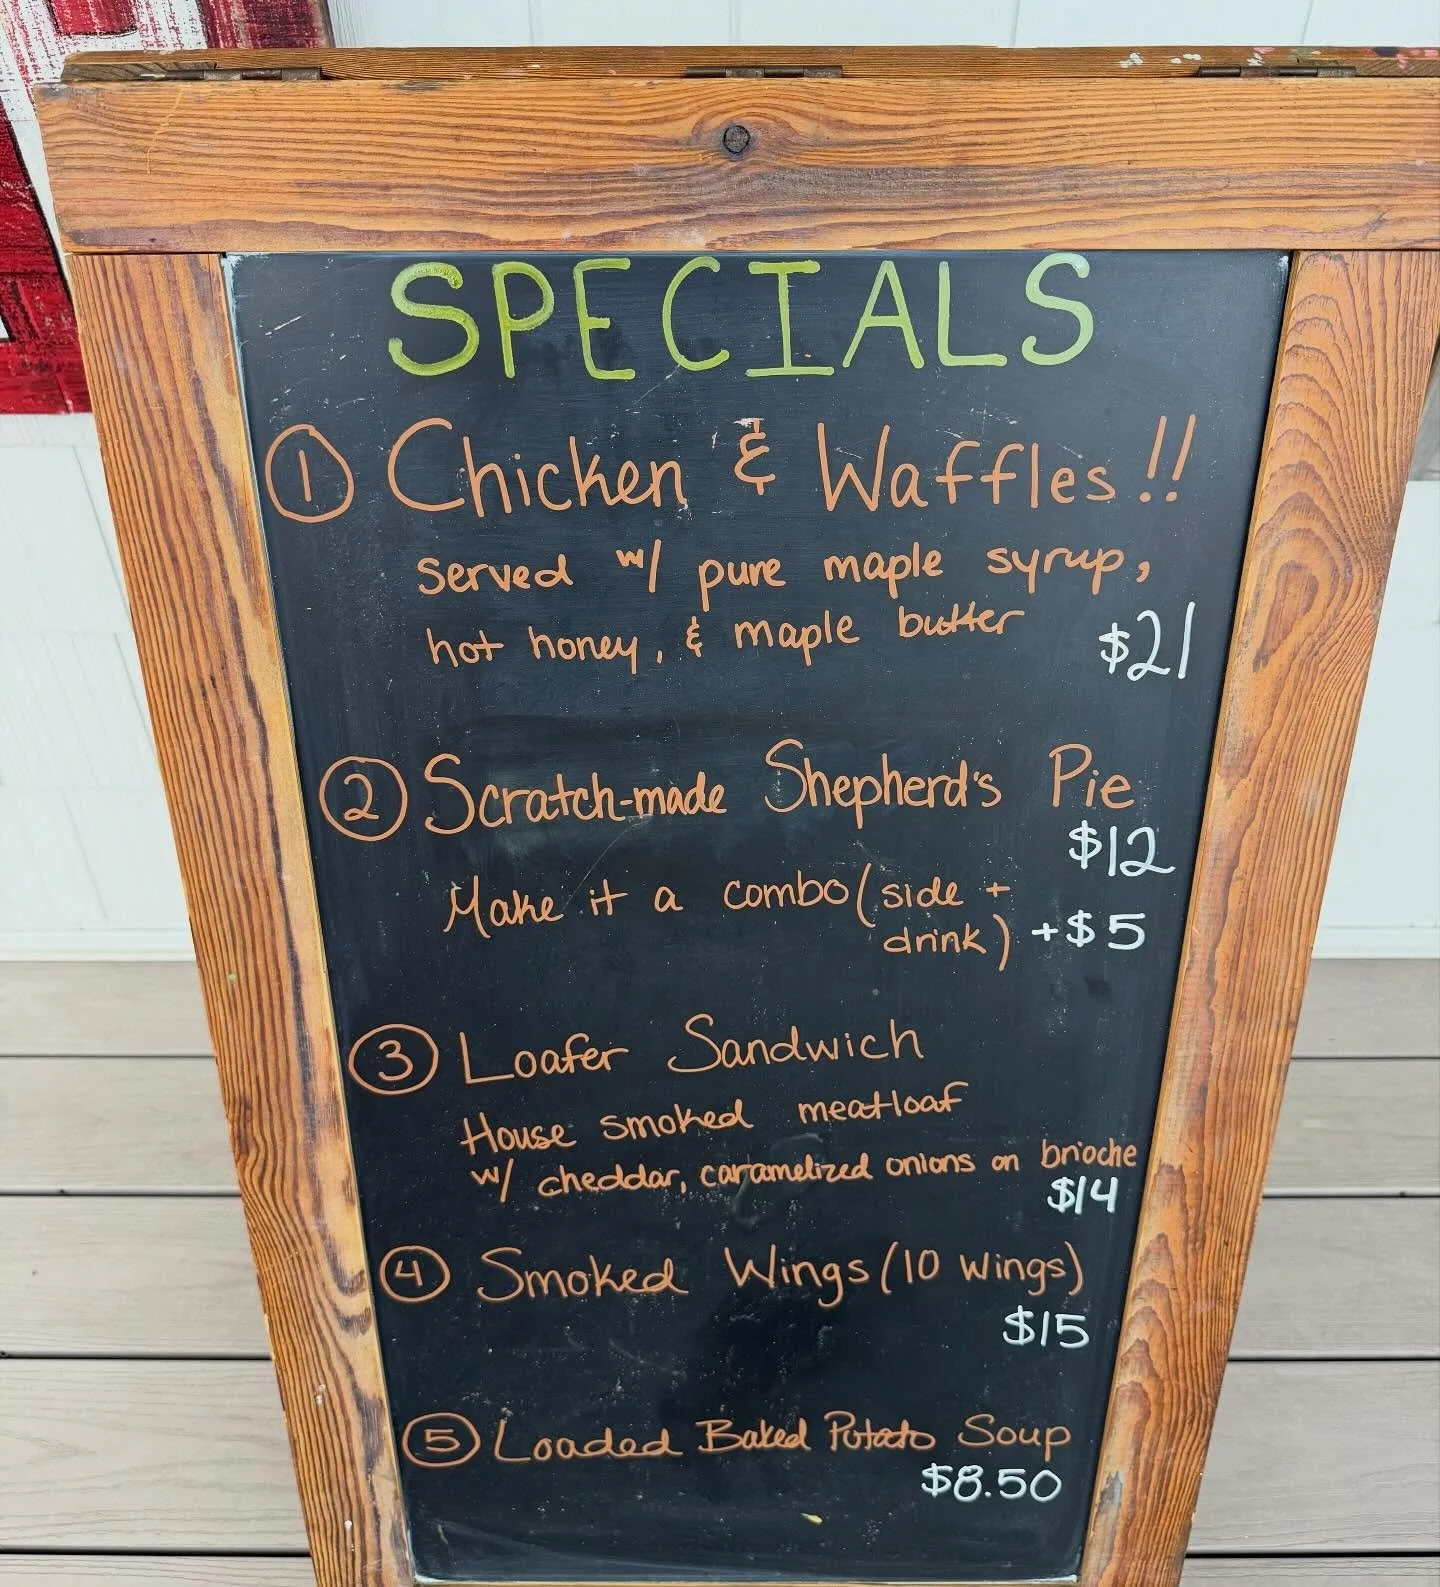 SPECIALS
① Chicken & Waffles!!
served w/ pure maple syrup,
hot honey, & maple butter $21
② Scratch-made Shepherd's Pie
$12
Make it a combo (side +
drink) +$5
③ Loafer Sandwich
House smoked meatloaf
w/ cheddar, caramelized onions on brioche
$14
④ Smoked Wings (10 wings)
$15
⑤ Loaded Baked Potato Soup
$8.50